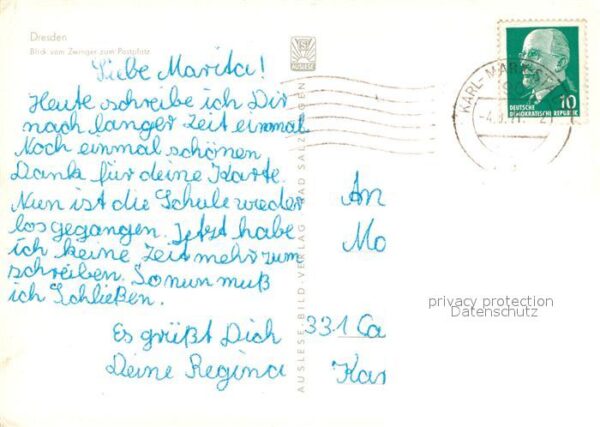 Dresden
Blick vom Zwinger zum Postplatz
Liebe Marita!
Heute schreibe ich Dir
nach langer Zeit einmal
Noch einmal schönen
Dank für deine Karte.
Nun ist die Schule wieder
losgegangen. Jetzt habe
ich keine Zeit mehr zum
schreiben. So nun muß
ich Schließen.
Es grüßt Dich
Deine Regina
AUSLESE-BILD-VERLAG BAD SALZUNGEN
KARL-MARX-ST
DEUTSCHE
DEMOKRATISCHE REPUBLIK
10
An
Mo
331 Ca
Kar
privacy protection
Datenschutz